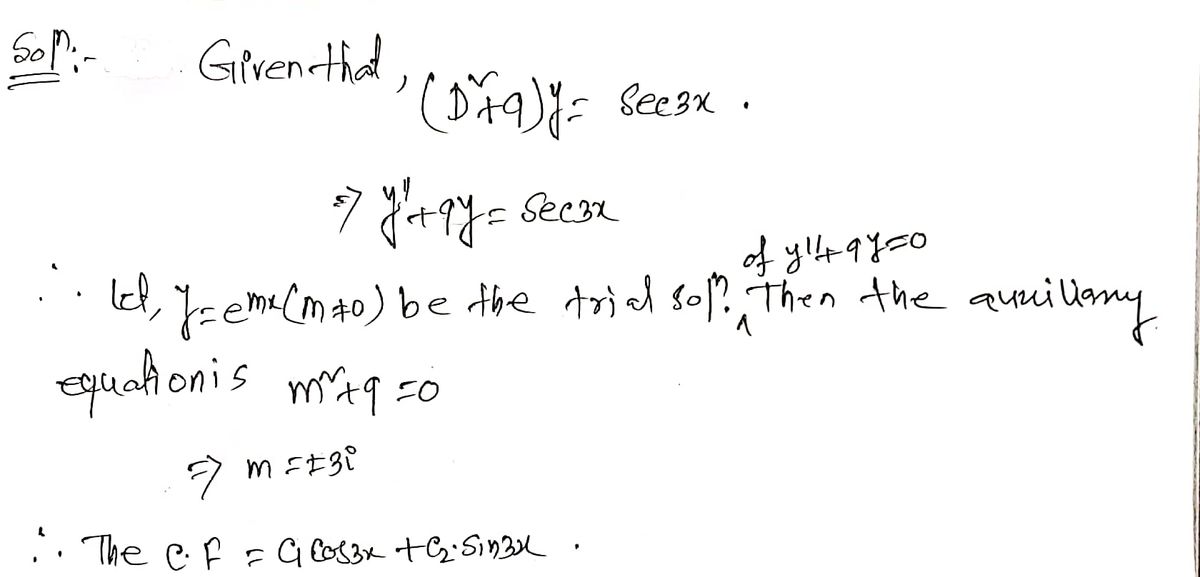 Solⁿ:- Given that, (D²+9)y = Sec3x .
⇒ y''+9y = Sec3x
∴ let, y=e^{mx}(m≠0) be the trial solⁿ. of y''+9y=0 Then the auxillary
equation is m²+9=0
⇒ m=±3i
∴ The C.F = C₁ Cos3x + C₂·Sin3x .